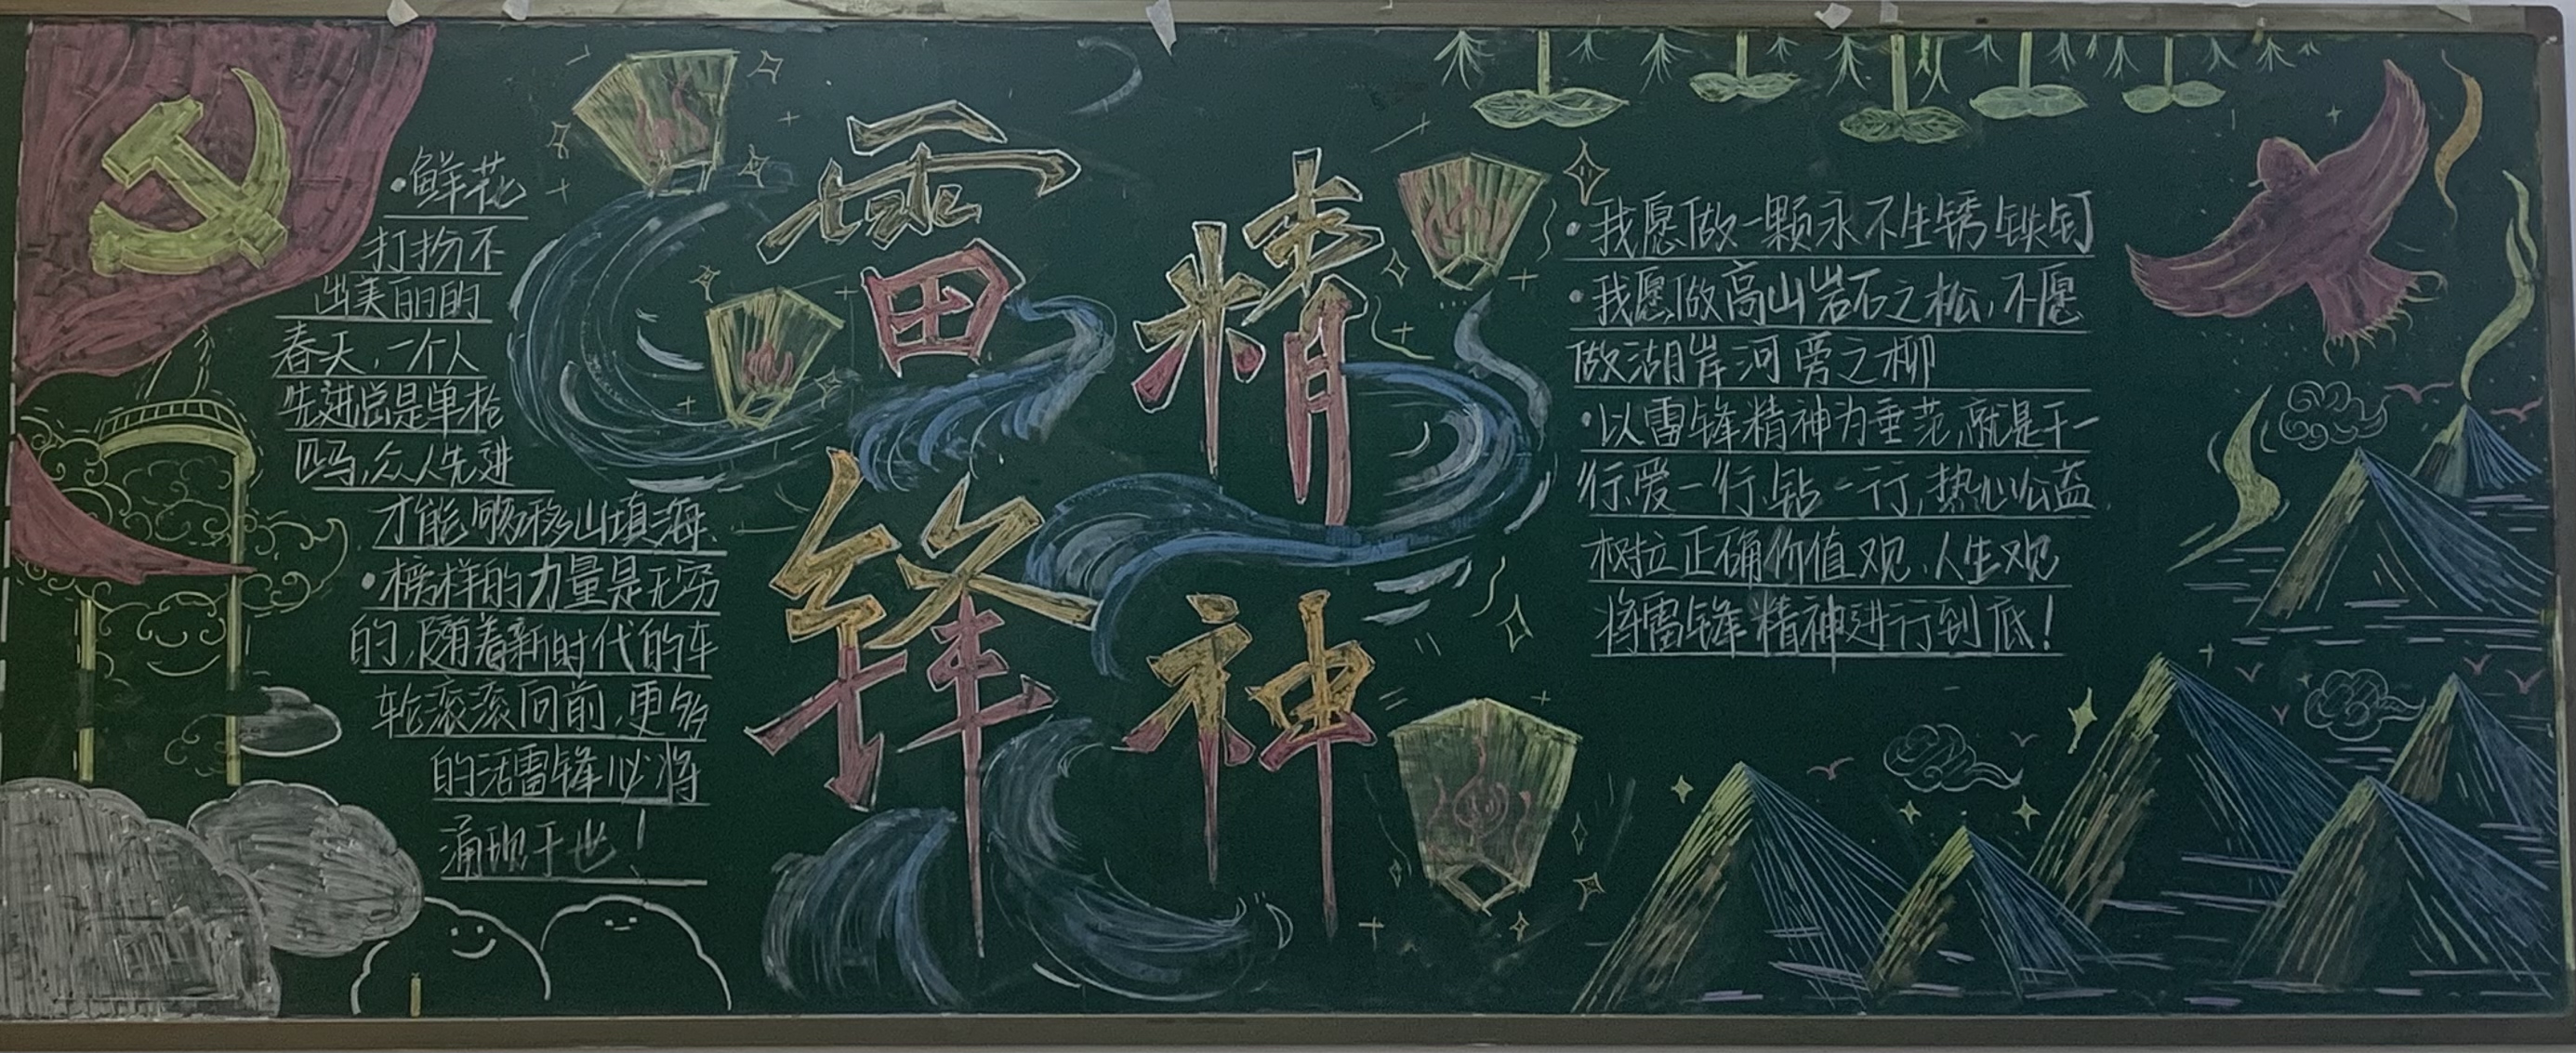 ·鲜花
打扮不
出美丽的
春天，一个人
先进总是单枪
匹马，众人先进
才能够移山填海.
·榜样的力量是无穷
的，随着新时代的车
轮滚滚向前，更多
的活雷锋必将
涌现于世！
雷
锋
精
神
·我愿做一颗永不生锈铁钉
·我愿做高山岩石之松，不愿
做湖岸河旁之柳
·以雷锋精神为垂范，就是干一
行、爱一行、钻一行，热心公益
树立正确价值观、人生观
将雷锋精神进行到底！